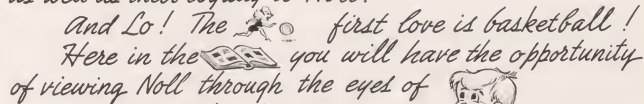 And Lo! The first love is basketball!
Here in the you will have the opportunity
of viewing Noll through the eyes of